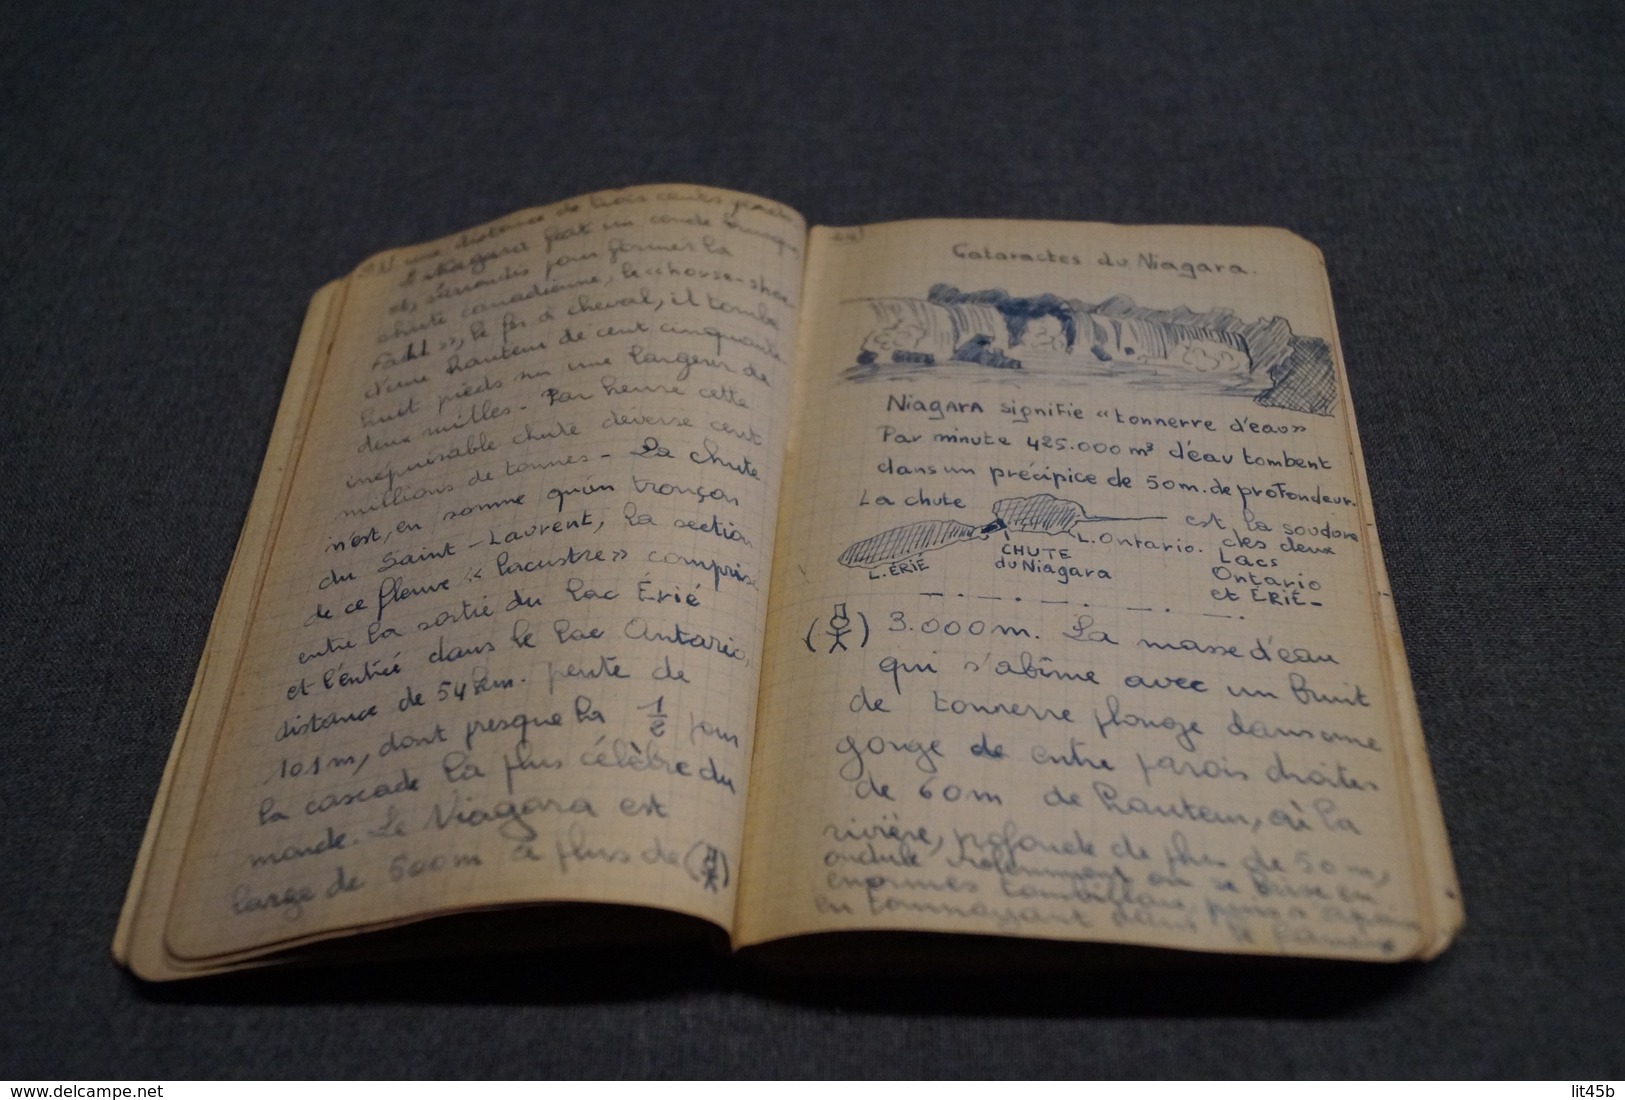 une distance de trois cents
le Niagara fait un coude brusque
et, s'arrondis pour former la
chute canadienne, le « horse-shoe
Fall », le fer à cheval, il tombe
d'une hauteur de cent cinquante
huit pieds sur une largeur de
deux milles - Par heure cette
inépuisable chute déverse cent
millions de tonnes - La chute
n'est, en somme qu'un tronçon
du Saint-Laurent, la section
de ce fleuve « lacustre » comprise
entre la sortie du lac Érié
et l'entrée dans le lac Ontario,
distance de 54 km. pente de
101m, dont presque la 1/2 pour
la cascade la plus célèbre du
monde. Le Niagara est
large de 600m à plus de
Cataractes du Niagara.
Niagara signifie « tonnerre d'eau »
Par minute 425.000 m³ d'eau tombent
dans un précipice de 50m. de profondeur.
La chute
est la soudure
des deux
Lacs
Ontario
et ÉRIÉ -
L. ÉRIÉ
CHUTE
du Niagara
L. Ontario.
3.000m. La masse d'eau
qui s'abîme avec un bruit
de tonnerre plonge dans une
gorge de entre parois droites
de 60m de hauteur, où la
rivière, profonde de plus de 50m,
ondule où se brise en
énormes tourbillons, puis
en tournoyant dans le
delcampe.net
lit45b